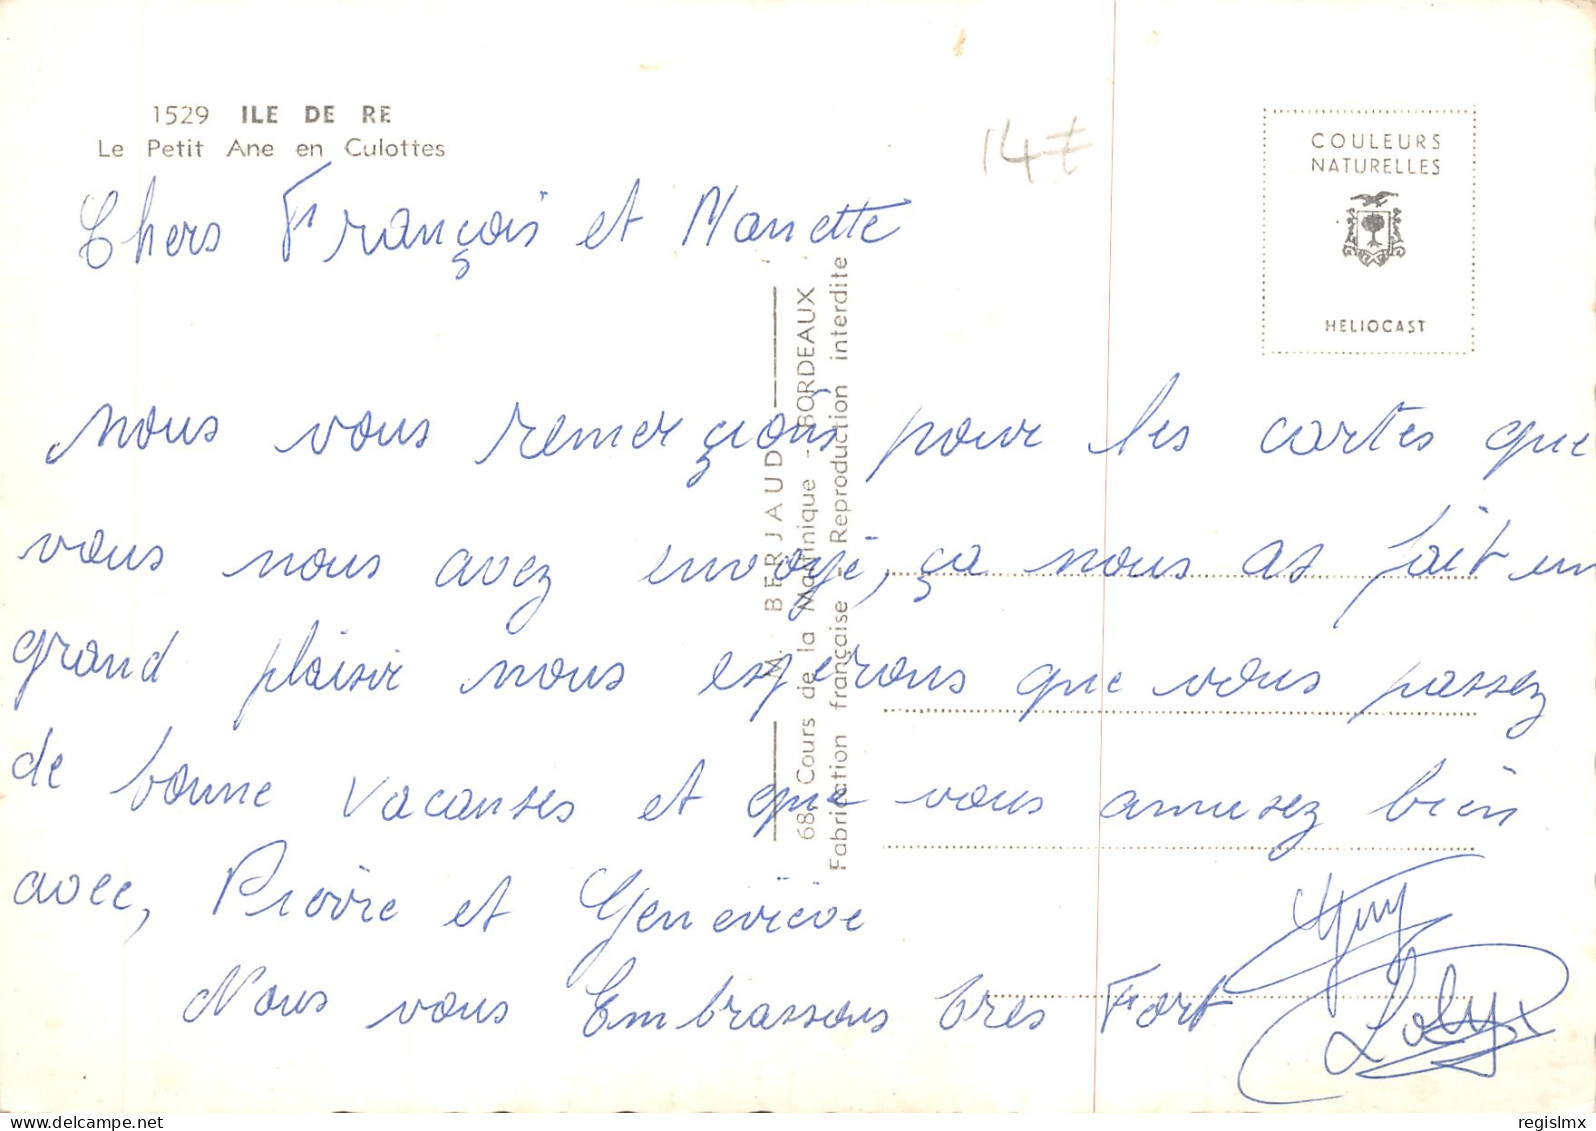 1529 ILE DE RE
Le Petit Ane en Culottes
14
COULEURS
NATURELLES
HELIOCAST
Chers François et Manette
M. BERJAUD
68, Cours de la Martinique - BORDEAUX
Fabrication française - Reproduction interdite
nous vous remerçions pour les cartes que
vous nous avez envoyé, ça nous as fait un
grand plaisir nous esperons que vous passez
de bonne vacanses et que vous amusez bien
avec, Pierre et Geneviève
Nous vous Embrassons tres Fort
Guy
Loly
delcampe.net
regislmx